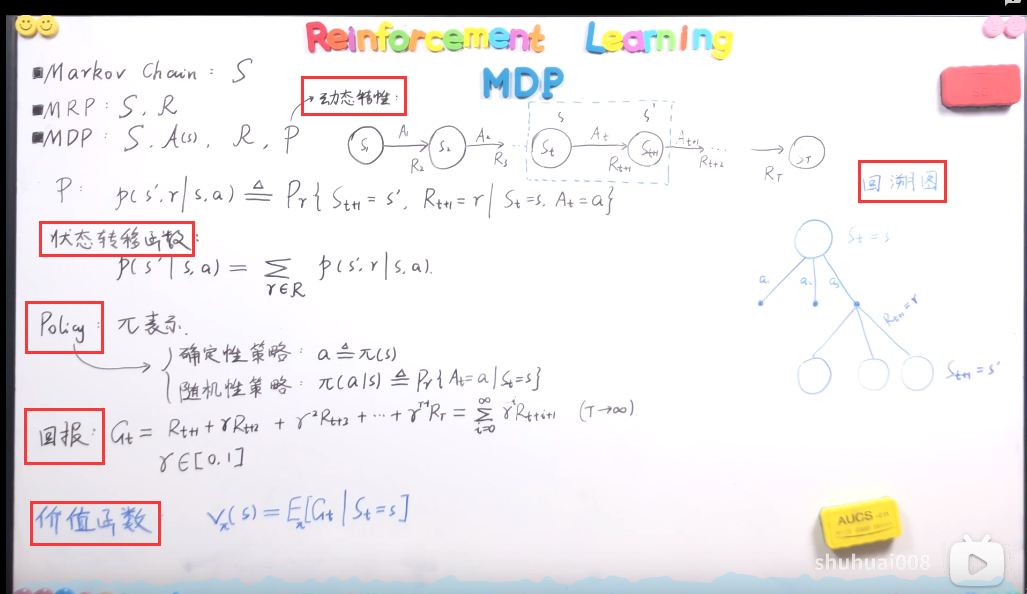 Reinforcement Learning
MDP
■Markov Chain: S
■MRP: S, R
■MDP: S, A(s), R, P → 动态特性:
S₁ A₁ R₂ S₂ A₂ R₃ ··· S_t A_t R_{t+1} S_{t+1} A_{t+1} R_{t+2} ··· R_T S_T
s s'
P: p(s',r|s,a) ≜ Pr{S_{t+1}=s', R_{t+1}=r | S_t=s, A_t=a}
状态转移函数:
p(s'|s,a) = ∑_{r∈R} p(s',r|s,a).
Policy: π表示.
确定性策略: a ≜ π(s)
随机性策略: π(a|s) ≜ Pr{A_t=a|S_t=s}
回报: G_t = R_{t+1} + γR_{t+2} + γ²R_{t+3} + ··· + γ^{T-1}R_T = ∑_{i=0}^{∞} γ^i R_{t+i+1} (T→∞)
γ∈[0,1]
价值函数 v_π(s) = E_π[G_t | S_t=s]
回溯图
S_t=s
a₁ a₂ a₃
R_{t+1}=r
S_{t+1}=s'
AUCS
shuhuai008